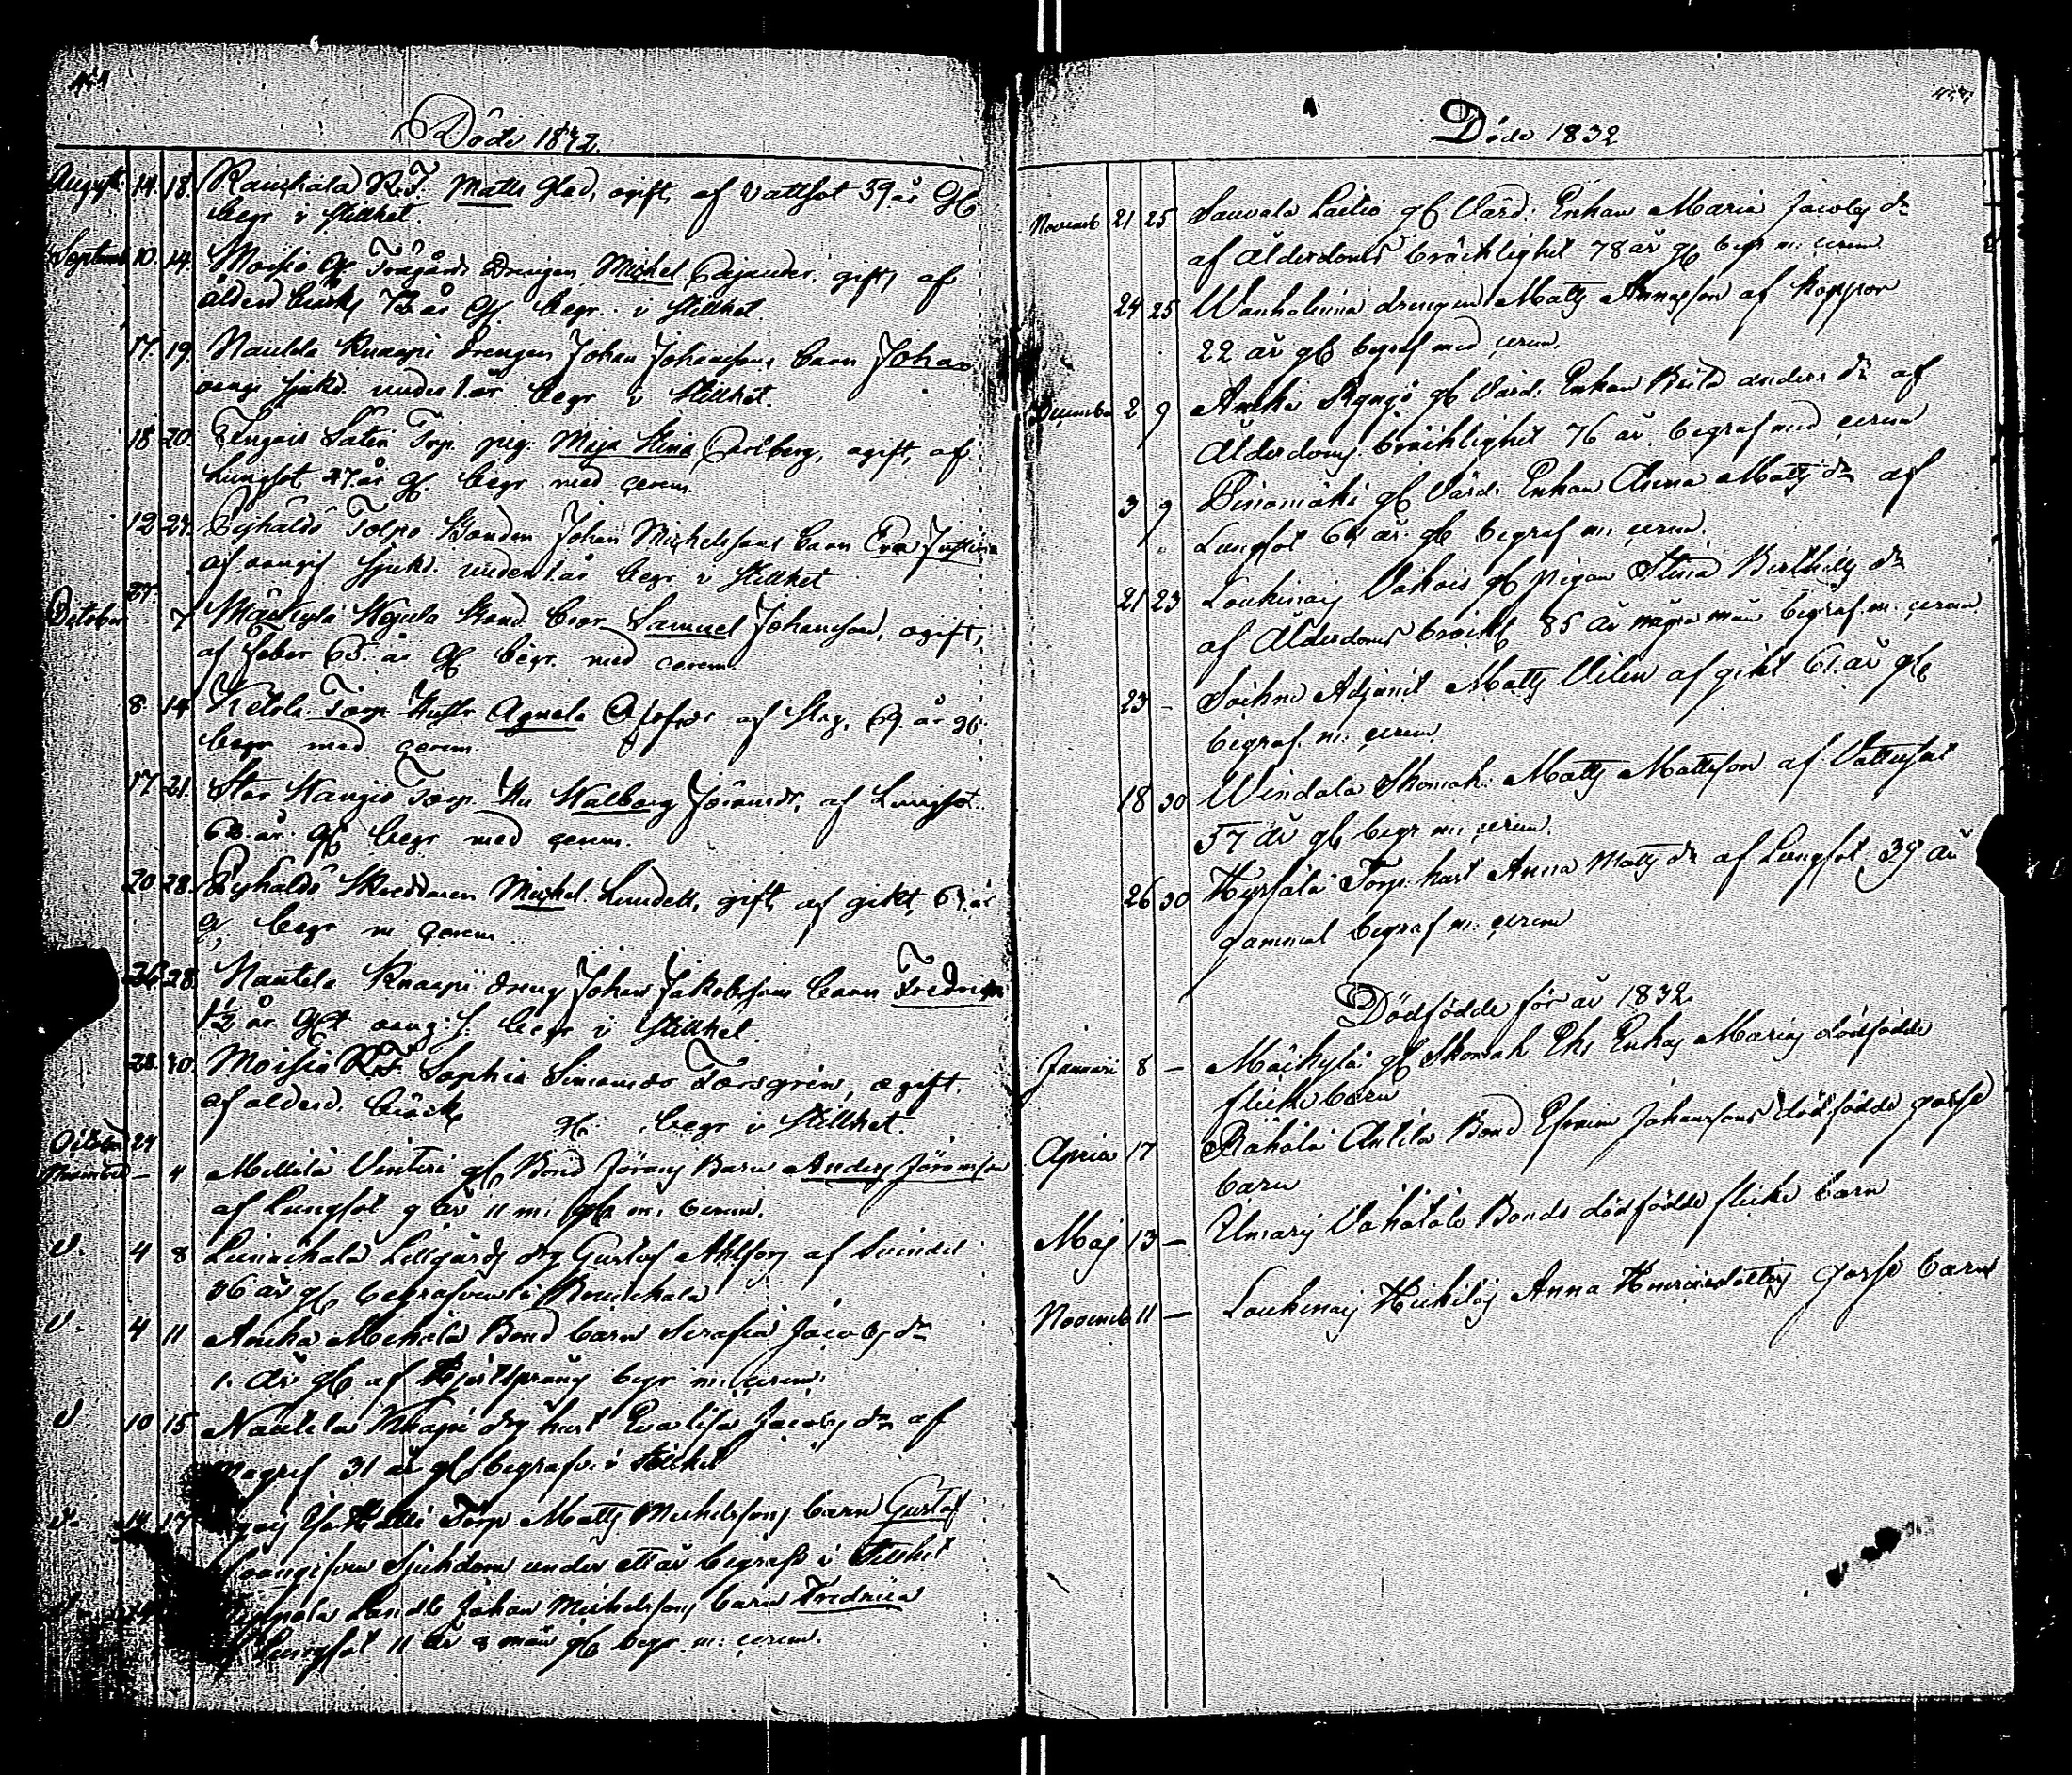 Döde 1832.
August 14. 18. Rauhala R.T. Matts Glad, ogift, af Vattsot 59 år Gl
begr i Stillhet.
Septemb 10. 14. Moisio Gl Trägårds Drengen Michel Cajander, gift, af
ålderd bräckl 72 år Gl. begr. i Stillhet.
17. 19. Nautela Knaapi Drengen Johan Johanssons barn Johan
oangi sjukd. under 1 år begr i Stillhet.
18 20. Satin Torp. pig. Maja Stina Carlberg, ogift, af
Lungsot 27 år Gl. begr med cerem.
12 23. Tolpo Bonden Johan Michelssons barn Eva Justina
af oangif sjukd. under 1 år begr i Stillhet
27.
October 7 Mäckylä Bond. bror Samuel Johansson, ogift,
af feber 65. år Gl begr. med cerem.
8. 14. Ketola Torp. Hustr Agneta af Slag, 69 år gl.
begr med cerem.
17. 21. Stor Kangio Torp. Hu Walborg Göransdr, af Lungsot
år. Gl begr med cerem.
20. 28. Pyhäldö Skreddaren Michel Lundell, gift, af gikt, år
g, begr m Cerem.
26 28. Nautela Knaapi dreng Johan Jakobssons barn Fredrica
1½ år Glt oang: s. begr i Stillhet.
28. 30. Moisio R.T. Sophia Simonsdr Forsgren, ogift
af alderd. bräckl gl: begr i Stillhet.
October 24
Novembr — 4 Mellilä Ventiri gl Bond Jörans Barn Anders Jöransson
af Lungsot 9 år 11 m: gl m: cerem.
d. 4 8 Leinakkala Lillgårds drg Gustaf Ahlfors af
36 år gl begrafven i Reunkala
d. 4 11 Anicka Mekälä Bond barn Serafia Jacobs dr
1. år gl af Hjertsprång begr m: cerem.
d. 10 15 Nautela Knapi drg hust Eva Lisa Jacobs dr af
Magref 31 år gl begrafv. i Stillhet
d. 14 17 Torp Matts Michelssons barn Gustaf
oangifven Sjukdom under ett år begrafv i Stillhet
Johan Michelssons barn Fredrica
Lungsot 11 år 8 mån gl begr m: cerem.
Döde 1832
Novemb 21 25 Sauvala Laitio gl Värd: Enkan Maria Jacobs dr
af Ålderdoms bräcklighet 78 år gl begr m: cerem.
24 25 Wanhalinna drengen Matts Annasson af Koppor
22 år gl begraf med cerem.
Decembr 2 9 Anicka Ryngö gl Värd: Enkan Beata Anders dr af
Ålderdoms bräcklighet 76 år begraf med cerem
3 9 gl Värd: Enkan Anna Matts dr af
Lungsot år gl begraf m: cerem.
21 23 Loukinais Vahois gl pigan Stina Berthils dr
af Ålderdoms bräckl 85 år några mån begraf m: cerem
23 – Soihno Adjunct Matts Vilen af gikt 61 år gl
begraf. m: cerem
18 30 Windala Skomak: Matts Mattsson af Vattusot
57 år gl begr m: cerem.
26 30 Hypsälä Torp. hust Anna Matts dr af Lungsot 39 år
gammal begraf m: cerem
Dödfödde för år 1832.
Januari 8 — Mäikylä gl Skomak Eks Enkas Marias dödfödde
flicke barn
April 17 Rähälä Antila Bond Efraim Johanssons dödfödde gosse
barn
Maj 13 — Vähätalo Bonds dödfödde flicke barn
Novemb 11 — Loukinais Heikiläs Anna Henricsdotters gosse barn